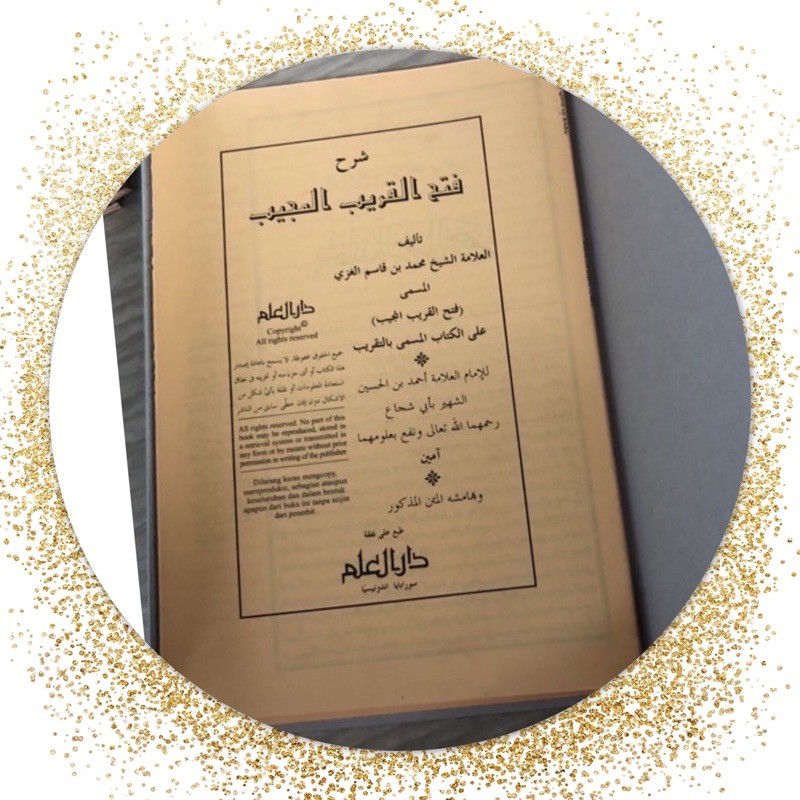 شرح
فتح القريب المجيب
تأليف
العلامة الشيخ محمد بن قاسم الغزي
المسمى
(فتح القريب المجيب)
على الكتاب المسمى بالتقريب
للإمام العلامة أحمد بن الحسين
الشهير بأبي شجاع
رحمهما الله تعالى ونفع بعلومهما
آمين
وبهامشه المتن المذكور
دار العلم
Copyright©
All rights reserved
جميع الحقوق محفوظة. لا يسمح بإعادة إصدار
هذا الكتاب أو أي جزء منه أو تخزينه في نطاق
استعادة المعلومات أو نقله بأيّ شكل من
الاشكال دون إذن خطّي سابق من الناشر
All rights reserved. No part of this
book may be reproduced, stored in
a retrieval system or transmitted in
any form or by means without prior
permission in writing of the publisher
Dilarang keras mengcopy,
mereproduksi, sebagian ataupun
keseluruhan dan dalam bentuk
apapun dari buku ini tanpa seijin
dari penerbit .
طبع على نفقة
دار العلم
سورابايا اندونيسيا